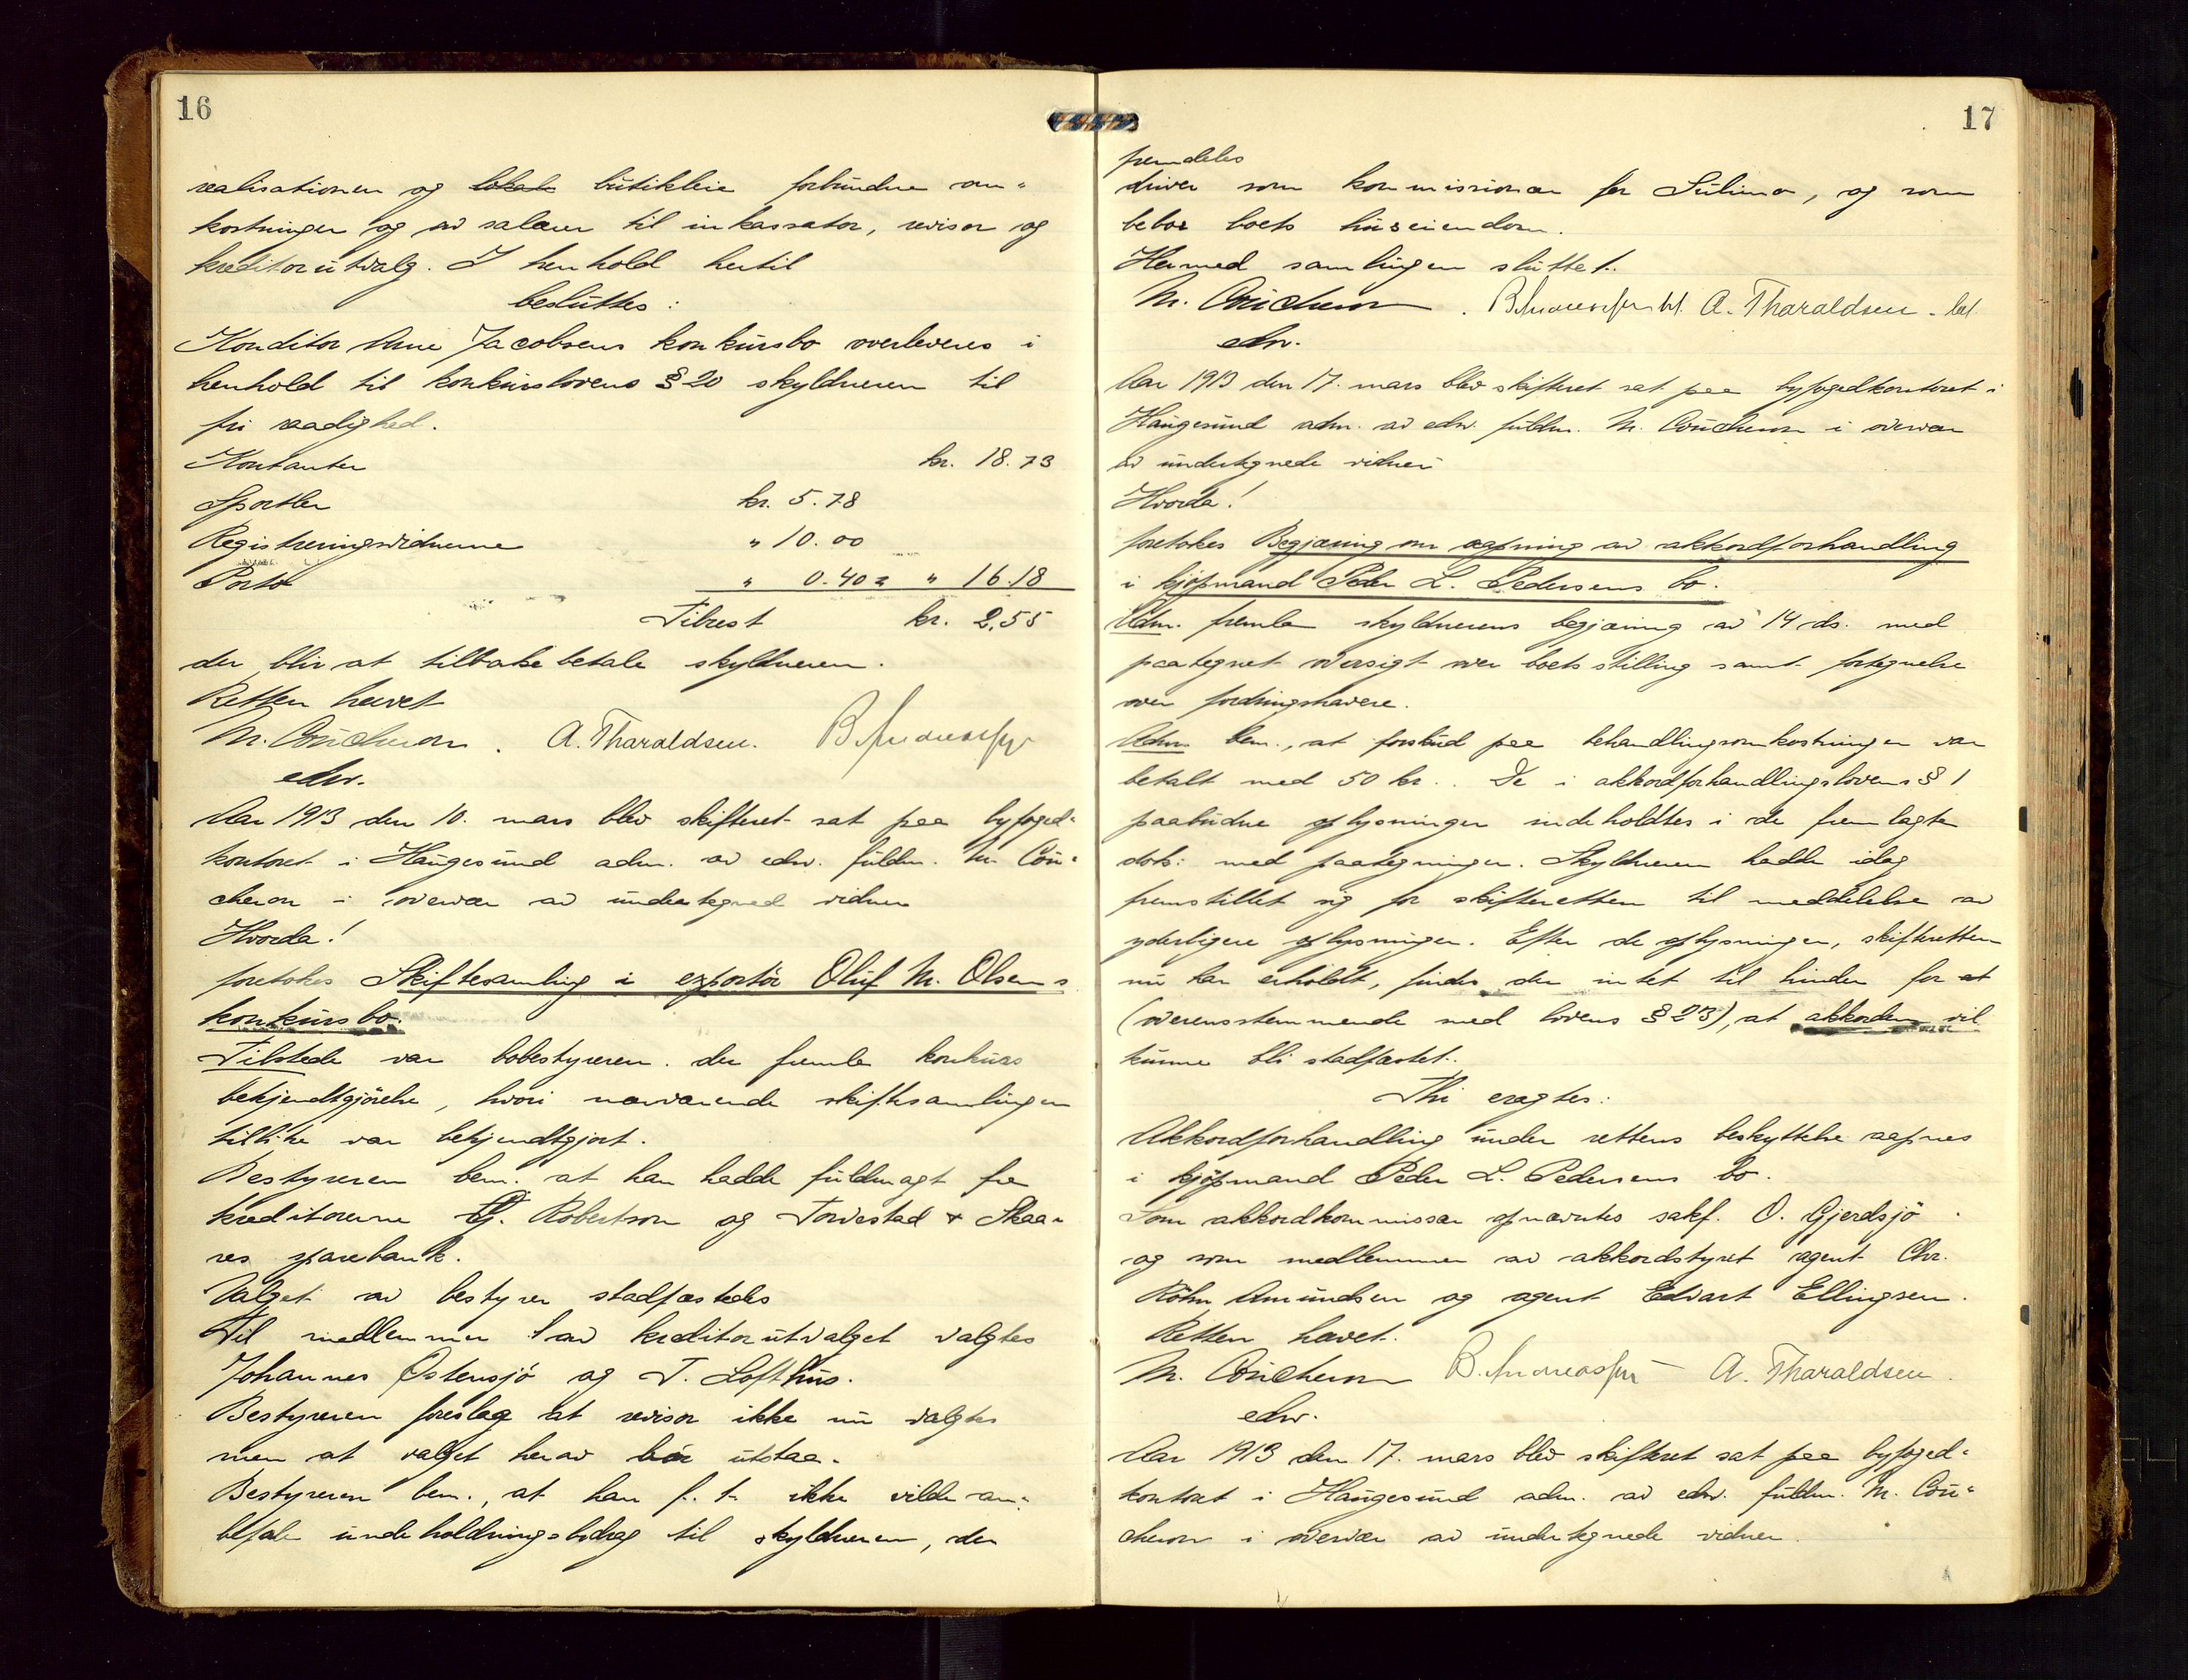 16
realisationen og lokale butikleie forbundne om-
kostninger og av salærer til inkassator, revisor og
kreditorutvalg. I henhold hertil
besluttes:
Konditor Arne Jacobsens konkursbo overleveres i
henhold til konkurslovens § 20 skyldneren til
fri raadighed.
Kontanter kr. 18.73
Sportler kr. 5.78
Registreringsvidnerne " 10.00
Porto " 0.40 = " 16.18
Tilrest kr. 2.55
der blir at tilbakebetale skyldneren.
Retten hævet
M. Coucheron. A. Tharaldsen. B. Andreassen
edsv.
Aar 1913 den 10. mars blev skifteret sat paa byfoged-
kontoret i Haugesund adm. av edsv. fuldm. M. Cou-
cheron i overvær av undertegnede vidner
Hvorda!
foretokes Skiftesamling i exportør Oluf M. Olsens
konkursbo.
Tilstede var bobestyreren. der fremla konkurs
bekjendtgjörelse, hvori nærværende skiftesamlingen
tillike var bekjendtgjort.
Bestyreren bem. at han hadde fuldmagt fra
kreditorerne Robertson og Torvestad & Skaa-
res sparebank.
Valget av bestyrer stadfæstedes
Til medlemmer av kreditorutvalget valgtes
Johannes Østensjö og T. Lofthus.
Bestyreren foreslog at revisor ikke nu valgtes
men at valget herav bör utstaa.
Bestyreren bem., at han f. t. ikke vilde an-
befale underholdningsbidrag til skyldneren, der
17
fremdeles
driver som kommissionær for Sulima, og som
bebor boets huseiendom.
Hermed samlingen sluttet.
M. Coucheron. B. Andreassen bst. A. Tharaldsen. bst.
edsv.
Aar 1913 den 17. mars blev skifteret sat paa byfogedkontoret i
Haugesund adm. av edsv. fuldm. M. Coucheron i overvær
av undertegnede vidner
Hvorda!
foretokes Begjæring om aapning av akkordforhandling
i kjøpmand Peder L. Pedersens bo.
Adm. fremla skyldnerens begjæring av 14 ds. med
paategnet oversigt over boets stilling samt fortegnelse
over fordringshavere.
Adm. bem., at forskud paa behandlingsomkostninger var
betalt med 50 kr.. De i akkordforhandlingslovens § 1
paabudne oplysninger indeholdtes i de fremlagte
dok: med paategninger. Skyldneren hadde idag
fremstillet sig for skifteretten til meddelelse av
yderligere oplysninger. Efter de oplysninger, skifteretten
nu har erholdt, findes der intet til hinder for at
(overensstemmende med lovens § 23), at akkorden vil
kunne bli stadfæstet.
Thi eragtes:
Akkordforhandling under rettens beskyttelse aapnes
i kjøpmand Peder L. Pedersens bo.
Som akkordkommissær opnævntes sakf. O. Gjerdsjö
og som medlemmer av akkordstyret agent Chr.
Röhn Amundsen og agent Edvart Ellingsen.
Retten hævet.
M. Coucheron B. Andreassen A. Tharaldsen.
edsv.
Aar 1913 den 17. mars blev skifteret sat paa byfoged-
kontoret i Haugesund adm. av edsv. fuldm. M. Cou-
cheron i overvær av undertegnede vidner.